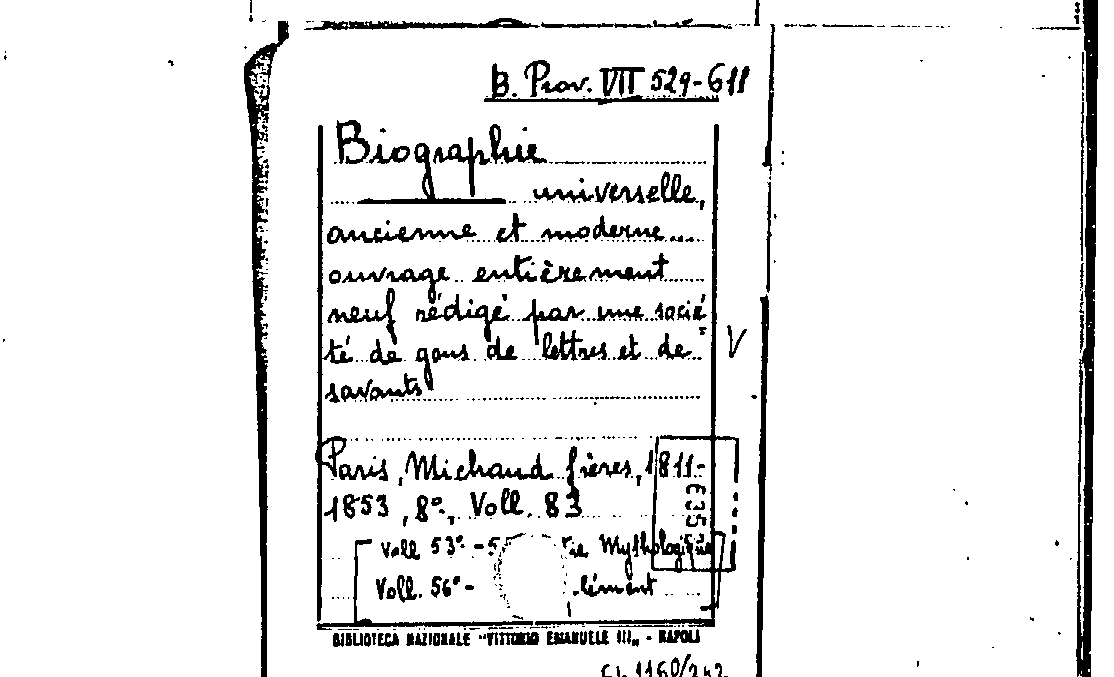 B. Prov. VII 529-611
Biographie
universelle,
ancienne et moderne...
ouvrage entièrement
neuf rédigé par une socié
té de gens de lettres et de
savants
V
Paris, Michaud frères, 1811-
1853, 8º, Voll. 83
Voll 53º - 5 Mythologique
Voll. 56º -
635
BIBLIOTECA NAZIONALE "VITTORIO EMANUELE III" - NAPOLI